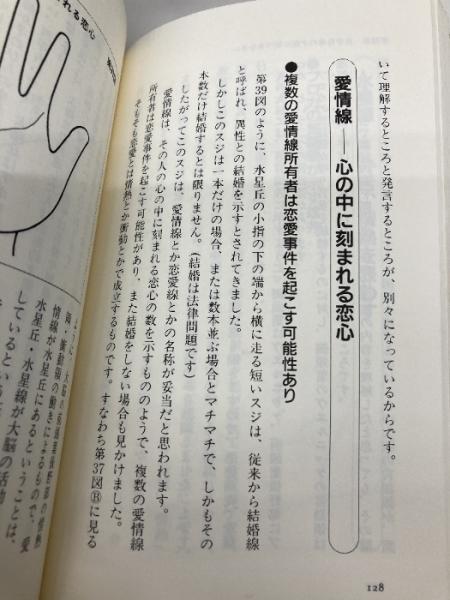 いて理解するところと発言するところが、別々になっているからです。
愛情線――心の中に刻まれる恋心
●複数の愛情線所有者は恋愛事件を起こす可能性あり
第39図のように、水星丘の小指の下の端から横に走る短いスジは、従来から結婚線
と呼ばれ、異性との結婚を示すとされてきました。
しかしこのスジは一本だけの場合、または数本並ぶ場合とマチマチで、しかもその
本数だけ結婚するとは限りません。(結婚は法律問題です)
したがってこのスジは、愛情線とか恋愛線とかの名称が妥当だと思われます。
愛情線は、その人の心の中に刻まれる恋心の数を示すもののようで、複数の愛情線
所有者は恋愛事件を起こす可能性があり、また結婚をしない場合も見かけました。
そもそも恋愛とは情熱とか衝動とかで成立するものです。すなわち第37図Ⓑに見る
128
まれる恋心
情線が水星丘にあるということは、愛
水星丘、水星線が大脳の活動
しているという